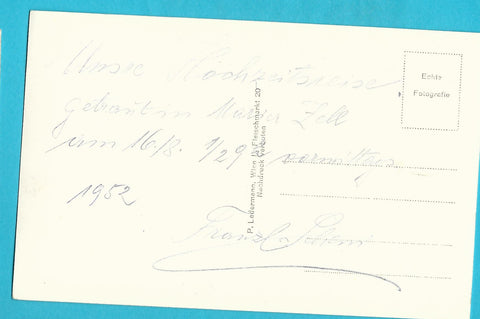 Unsre Hochzeitsreise
getraut in Maria Zell
am 16./8. 1/2 9h vormittags
1952
Franzl
Echte
Fotografie
P. Ledermann, Wien I., Fleischmarkt 20
Nachdruck verboten